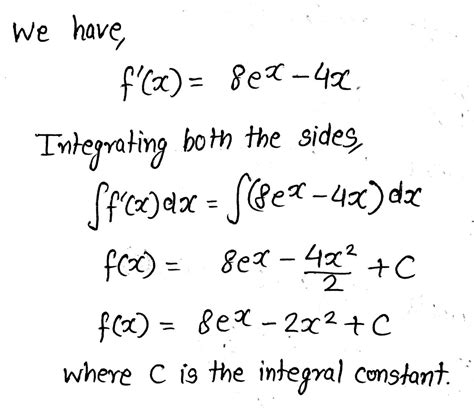 We have,
f'(x) = 8eˣ – 4x.
Integrating both the sides,
∫f'(x)dx = ∫(8eˣ – 4x)dx
f(x) = 8eˣ – 4x²/2 + C
f(x) = 8eˣ – 2x² + C
where C is the integral constant.